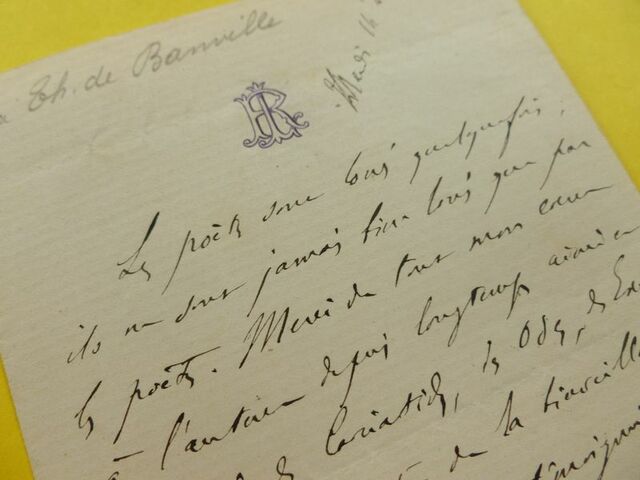 à Th. de Banville
Mardi 14
Les poëtes sont loués quelquefois,
ils ne sont jamais bien loués que par
les poëtes. Merci de tout mon cœur
à l'auteur depuis longtemps aimé
des Cariatides, des Odes, des
de la